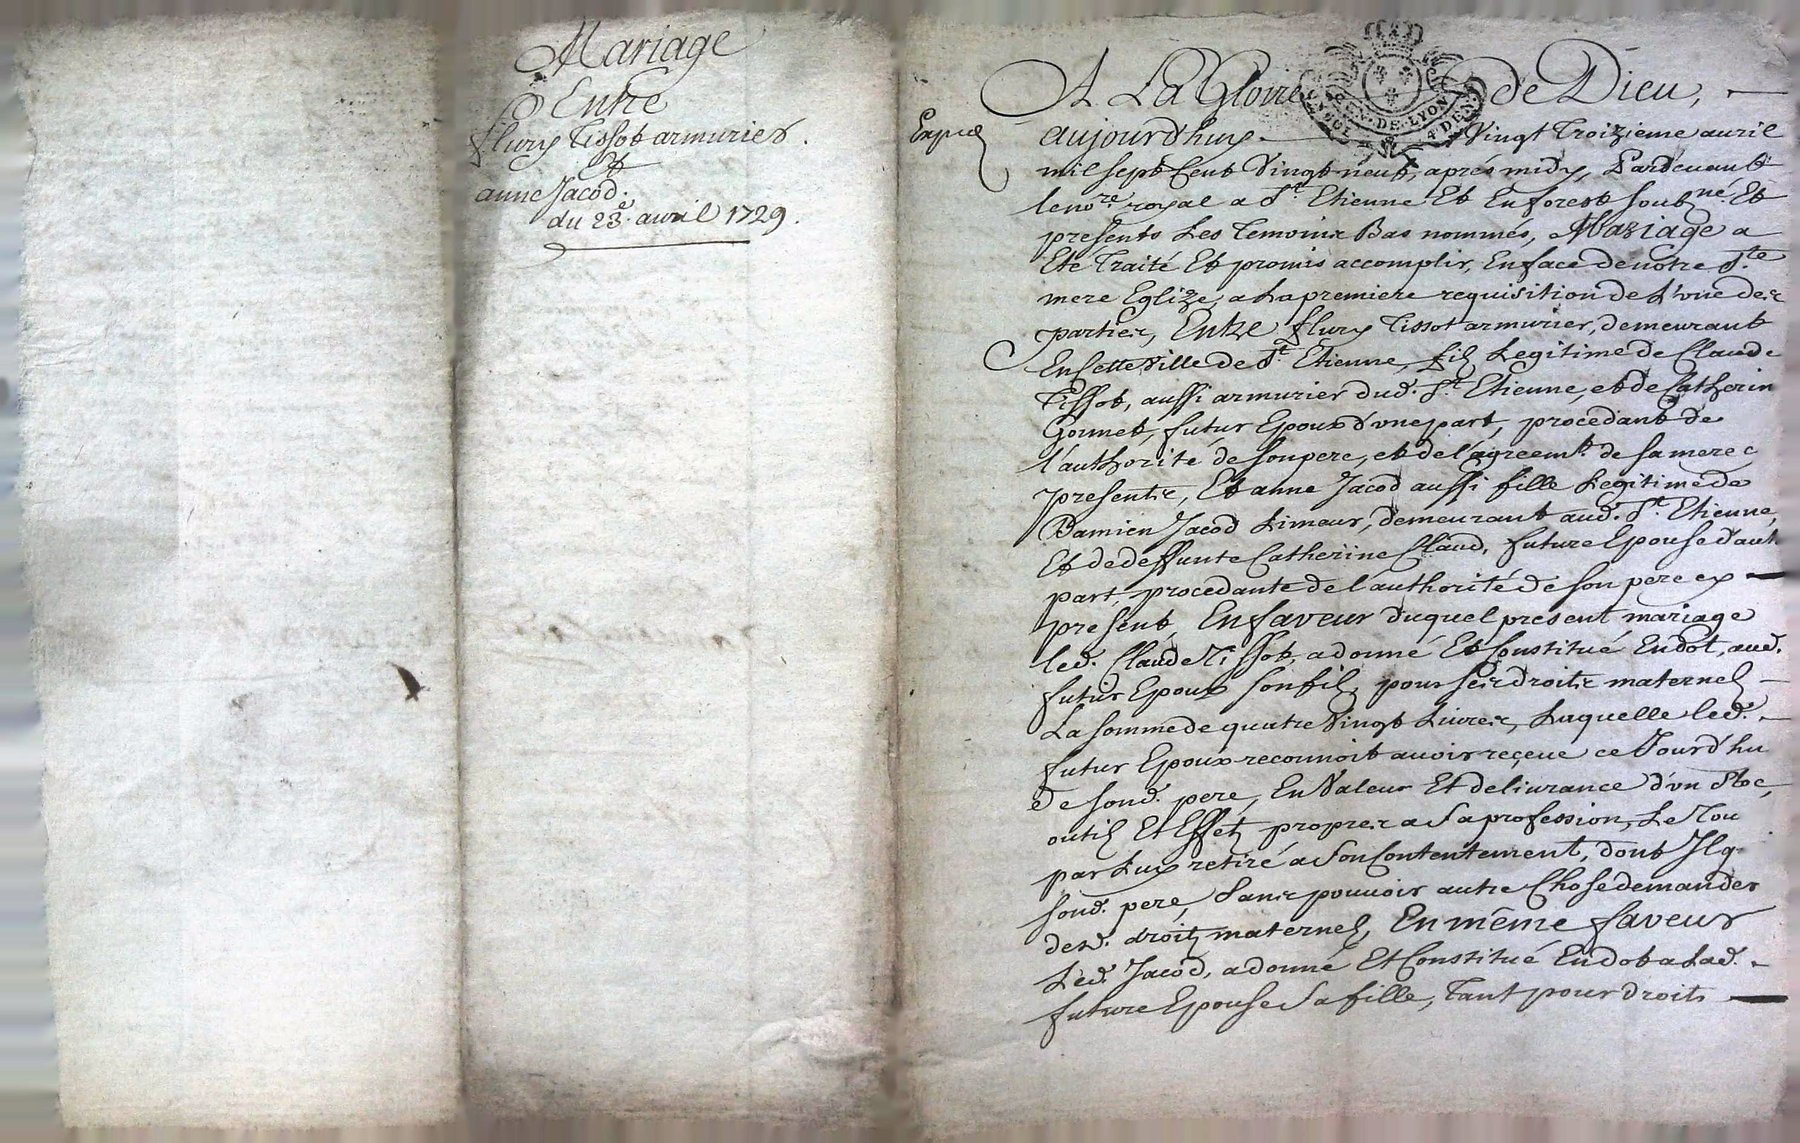 Mariage
Entre
fleury Tissot armurier.
&
anne Jacod.
du 23e. avril 1729.
A La Gloire de Dieu,
Expié
aujourd'huy Vingt Troizieme avril
mil sept Cent Vingt neuf, aprés midy, Pardevant
le nore. royal a St. Etienne Et En forest soubzné. Et
presents Les Temoins Bas nommés, Mariage a
Eté Traité Et promis accomplir, En face de notre Ste
mere Eglize, a La premiere requisition de L'une des
parties, Entre fleury Tissot armurier, demeurant
En Cette Ville de St. Etienne, fils Legitime de Claude
Tissot, aussi armurier dud. St. Etienne, et de Catherin
Gonnet, futur Epoux d'une part, procedant de
l'authorité de son pere, et de l'agreemt. de sa mere
presents, Et anne Jacod aussi fille Legitime de
Damien Jacod Limeur, demeurant aud. St. Etienne,
Et de deffunte Catherine Claud, future Epouse d'aut
part, procedante de l'authorité de son pere cy
present, En faveur duquel present mariage
led. Claude Tissot, a donné Et Constitué En dot, aud.
futur Epoux son fils, pour ses droits maternels
La somme de quatre Vingt Livres, Laquelle led.
futur Epoux reconnoit avoir reçeue ce Jourd'hu
de sond. pere, En Valeur Et delivrance d'un Etoc,
outils Et Effets propres a Sa profession, Le Tou
par Luy retiré a Son Contentement, dont Il q
sond. pere, Sans pouvoir autre Chose demander
desd. droits maternels, En même faveur
Led. Jacod, a donné Et Constitué En dot a Lad.
future Epouse Sa fille, Tant pour droits